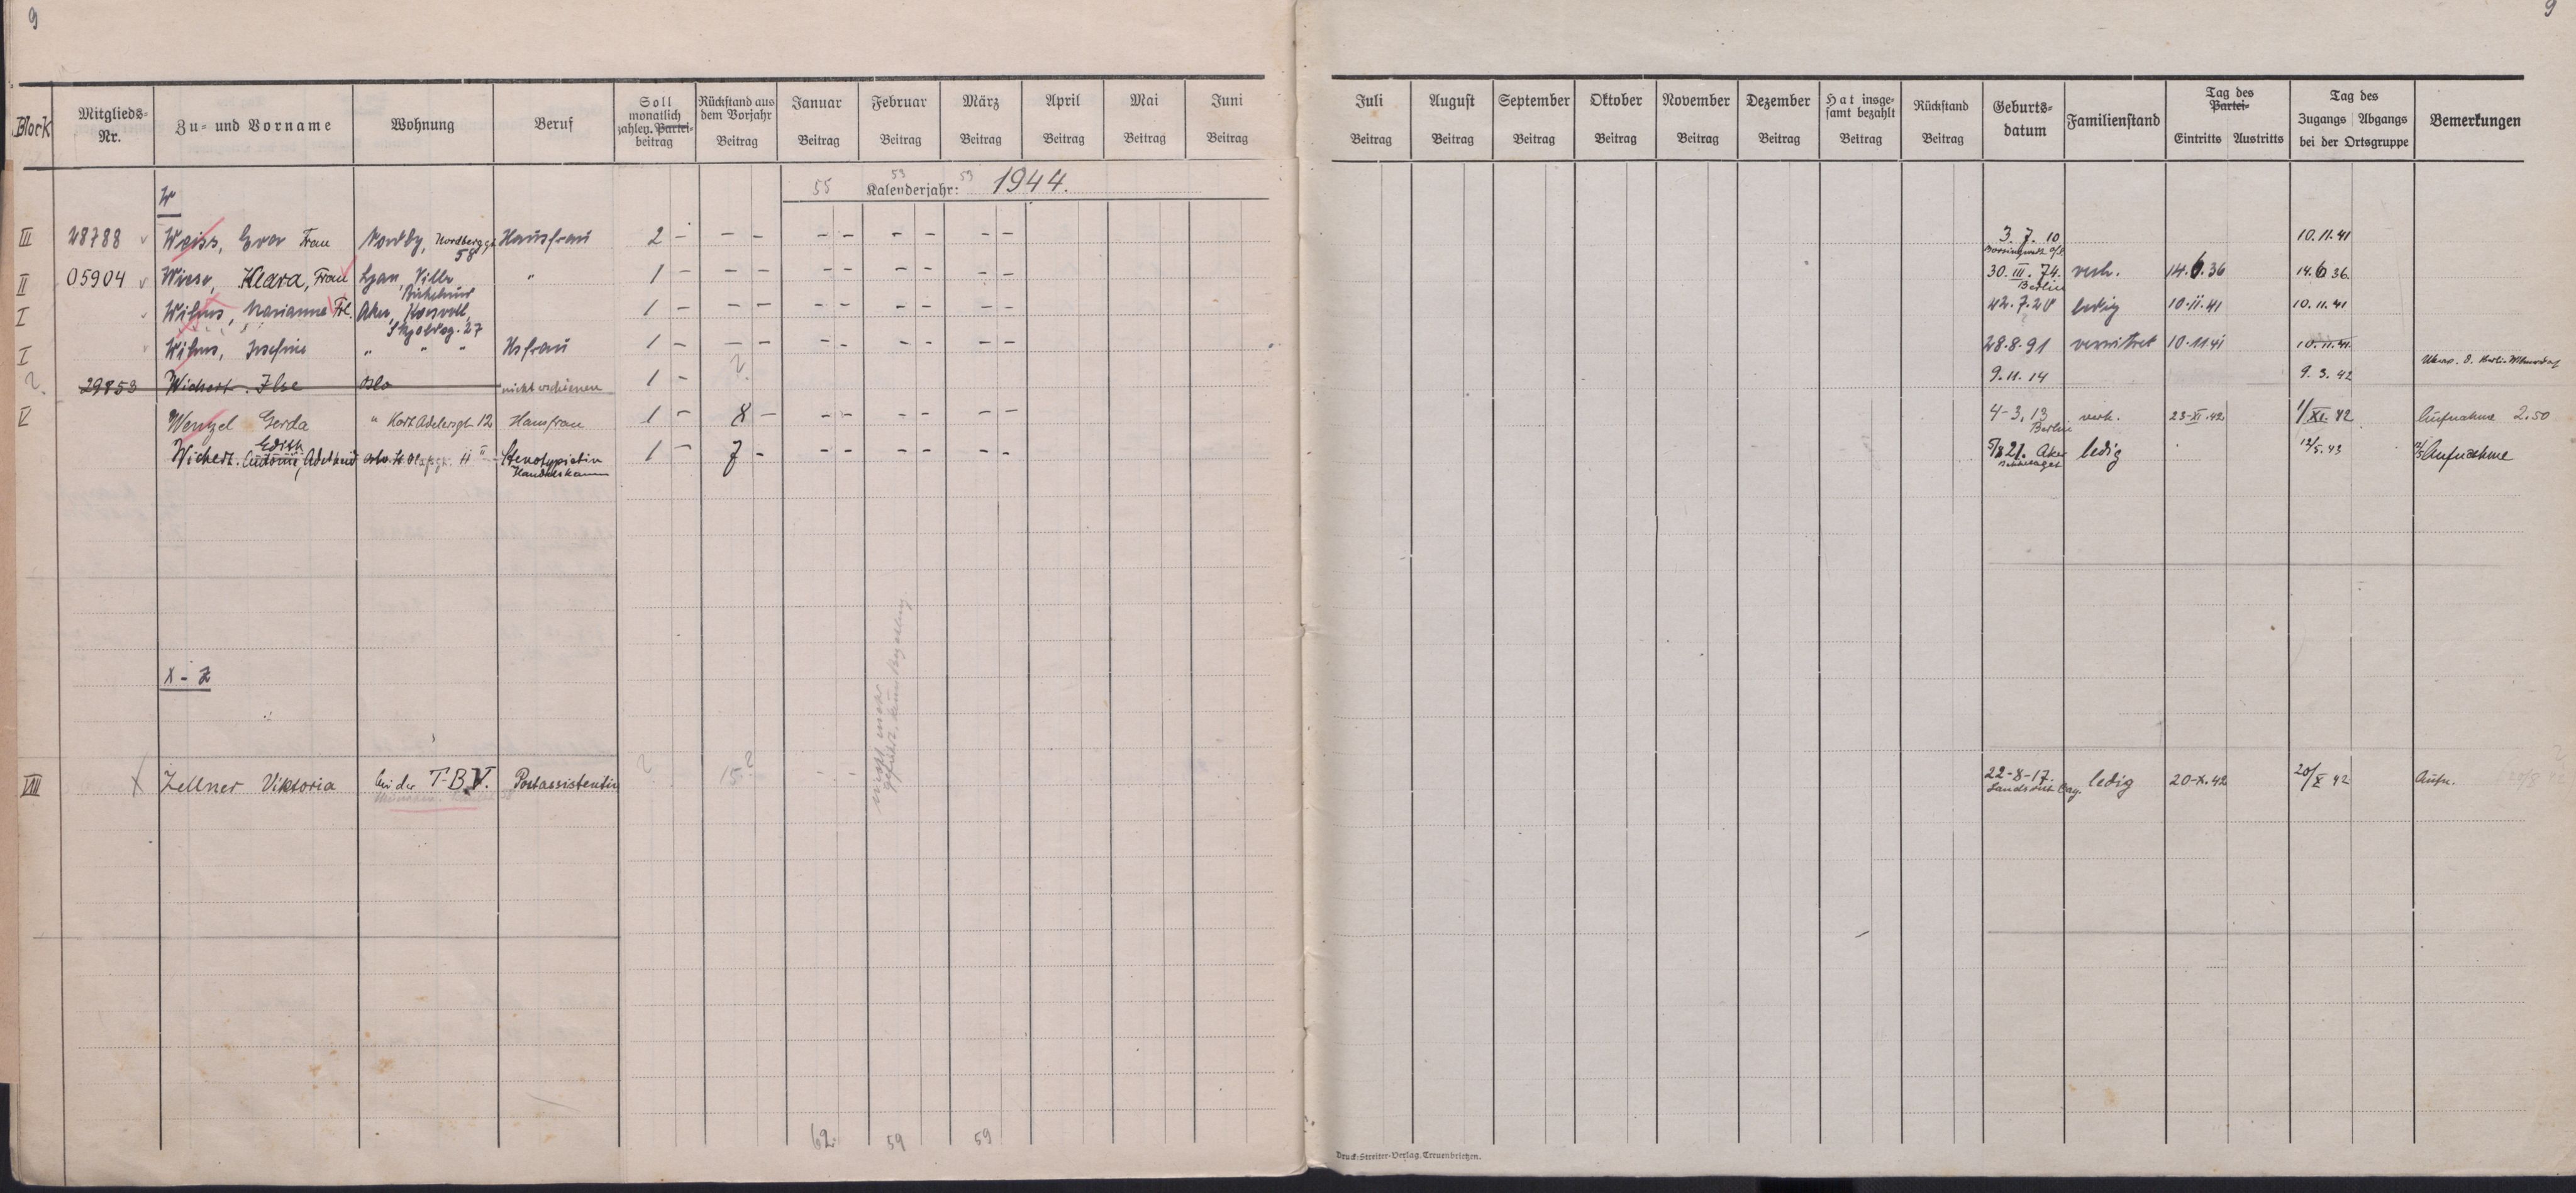 9
9
Block
Mitglieds-Nr.
Zu- und Vorname
Wohnung
Beruf
Soll monatlich zahlen. Partei-beitrag
Rückstand aus dem Vorjahr Beitrag
Januar Beitrag
Februar Beitrag
März Beitrag
April Beitrag
Mai Beitrag
Juni Beitrag
Juli Beitrag
August Beitrag
September Beitrag
Oktober Beitrag
November Beitrag
Dezember Beitrag
Hat insge-samt bezahlt Beitrag
Rückstand Beitrag
Geburts-datum
Familienstand
Tag des Partei- Eintritts Austritts
Tag des Zugangs Abgangs bei der Ortsgruppe
Bemerkungen
55 53 53
Kalenderjahr: 1944.
W
III 28788 Weiss, Frau Nordby, Nordbergg. 58 Hausfrau 2 - - - - - - - - - 3.7.10 10.11.41
II 05904 Wiese, Klara, Frau Villa " 1 - - - - - - - - - 30.III.74. Berlin verh. 14.6.36 14.6.36.
I Wilms, Marianne Frl. Aker, 27 1 - - - - - - - - - ledig 10.11.41 10.11.41
I Wilms, Josefine " " " Hsfrau 1 - - - - - - - - - 28.8.91 10.11.41 10.11.41
29853 Wichert. Ilse Oslo nicht erschienen 1 - ? 9.11.14 9.3.42
V Wenzel Gerda " Kort Adelersgt. 12 Hausfrau 1 - 8 - - - - - - - 4-3.13 Berlin verh. 23-XI.42 1/XI.42 Aufnahme 2.50
Wichert. Edith Adelheid Oslo. 11 II Stenotypistin Handelskamm 1 - 7 - - - - - - - 21. Aker ledig 12/5.43 Aufnahme
X - Z
VIII Zellner Viktoria bei der T-B.V. Postassistentin ? 15? 22-8-17. ledig 20-X.42 20/X 42 Aufn.
62. 59 59
Druck: Streiter-Verlag. Treuenbrietzen.